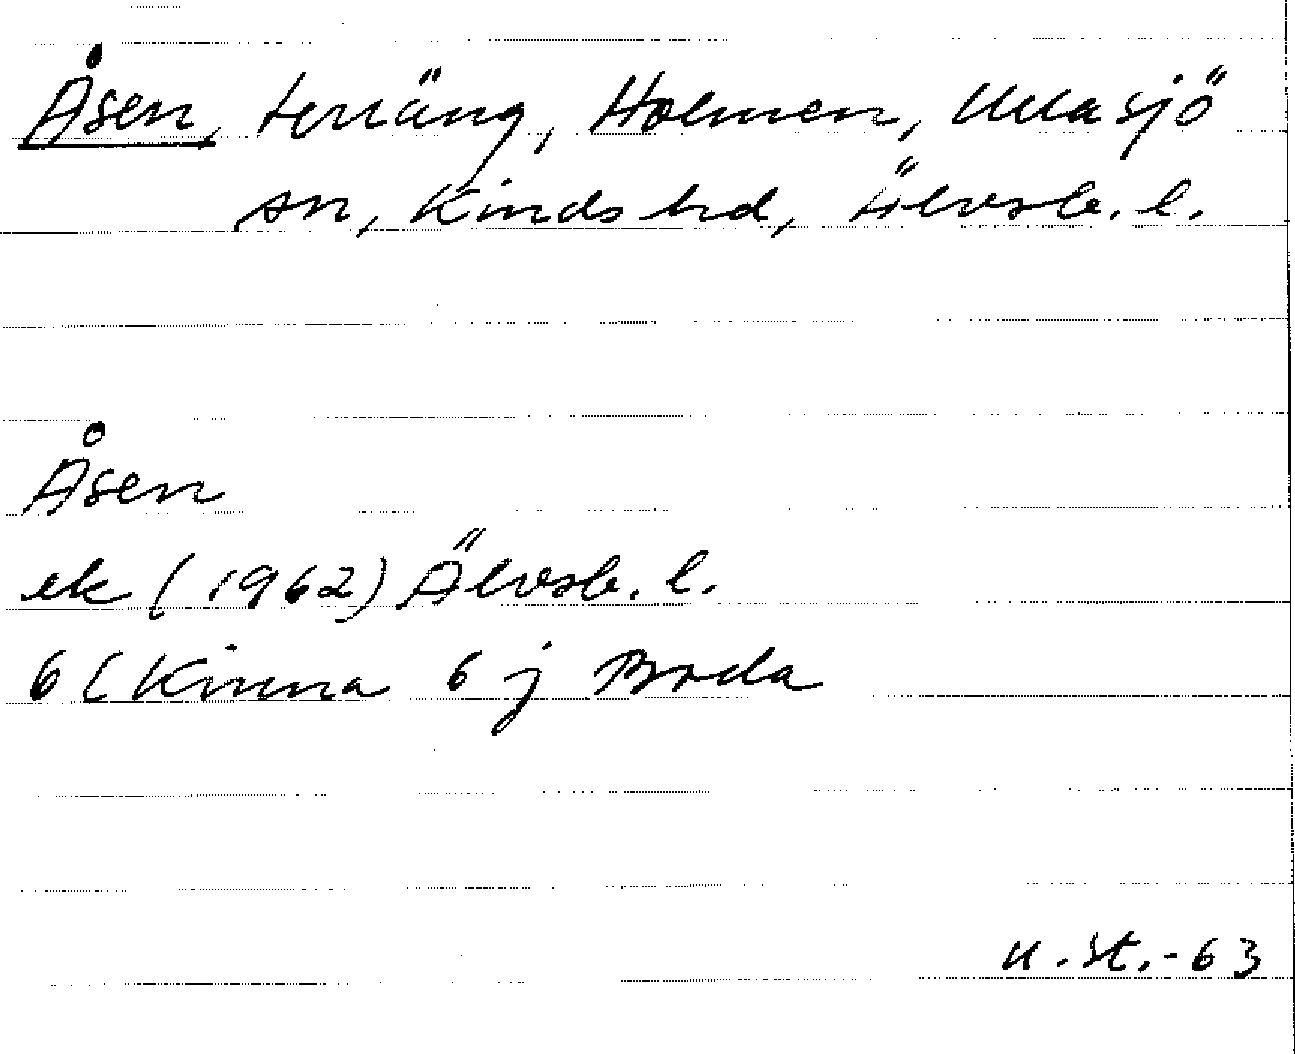 Åsen, terräng, Holmen, Ullasjö
sn, Kinds hd, Älvsb. l.
Åsen
ek (1962) Älvsb. l.
6 C Kinna 6 j Broda
u. st. -63